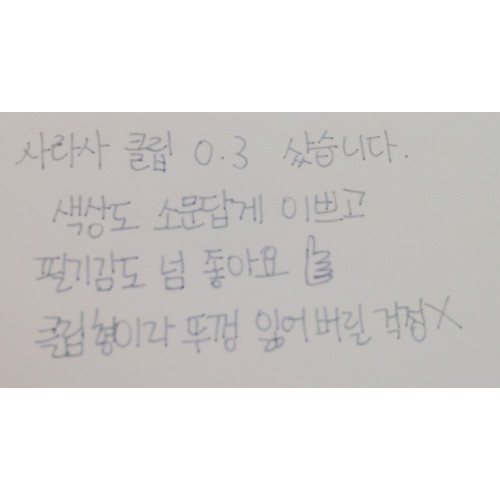 사라사 클립 0.3 샀습니다.
색상도 소문답게 이쁘고
필기감도 넘 좋아요 👍
클립형이라 뚜껑 잃어버릴 걱정X